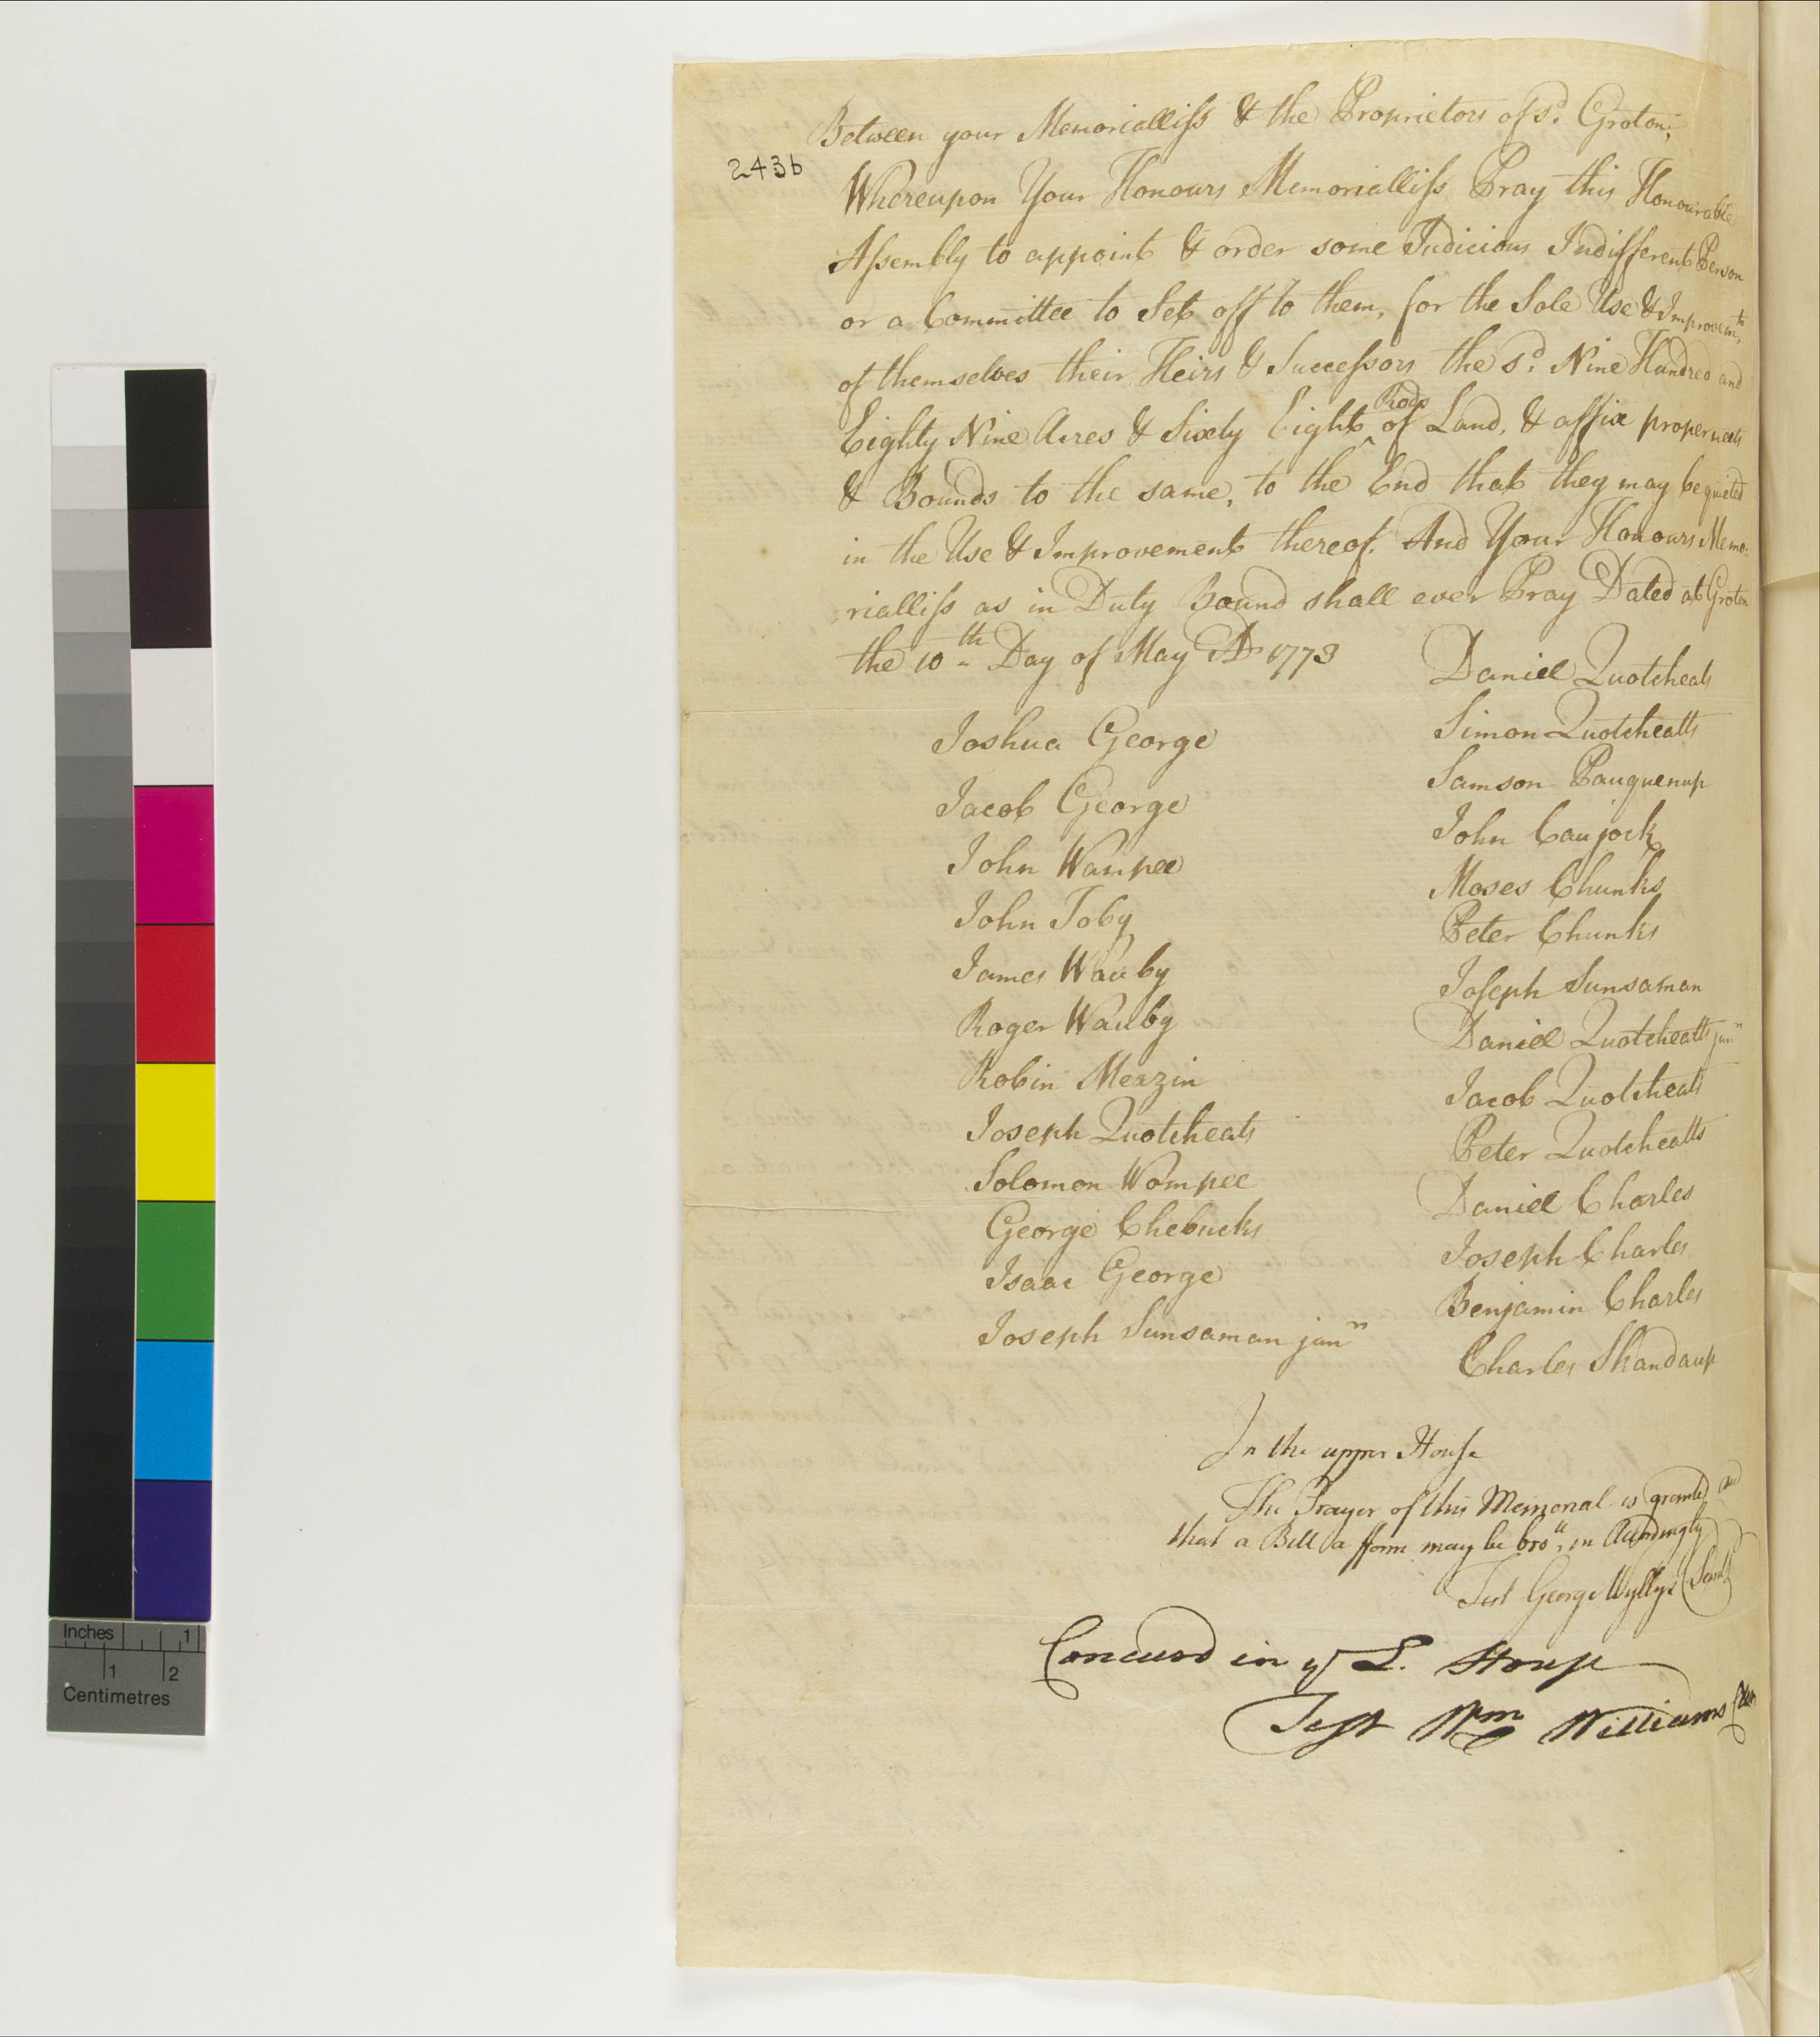 243b
Between your Memorialliss & the Proprietors of sd. Groton;
Whereupon Your Honours Memorialliss Pray this Honourable
Assembly to appoint & order some Judicious Indifferent Person
or a Committee to Set off to them, for the Sole Use & Improvemts.
of themselves their Heirs & Successors the sd. Nine Hundred and
Eighty Nine Acres & Sixty Eight ^ Rods of Land, & affix proper meets
& Bounds to the same, to the End that they may be quieted
in the Use & Improvement thereof. And Your Honours Memo-
rialliss as in Duty Bound shall ever Pray Dated at Groton
the 10th Day of May AD 1773
Daniel Quotcheats
Simon Quotcheatts
Samson Pauquenup
John Caujock
Moses Chunks
Peter Chunks
Joseph Sunsaman
Daniel Quotcheatts junr
Jacob Quotcheats
Peter Quotcheatts
Daniel Charles
Joseph Charles
Benjamin Charles
Charles Skandaup
Joshua George
Jacob George
John Wampee
John Toby
James Wauby
Roger Wauby
Robin Mezzin
Joseph Quotcheats
Solomon Wompee
George Chebucks
Isaac George
Joseph Sunsaman junr
In the upper House
The Prayer of this Memorial is granted and
that a Bill a fform may be brot. in Accordingly
Test George Wyllys Secret
Concurd in ye L. House
Test Wm Williams Cler
Inches 1
1 2
Centimetres